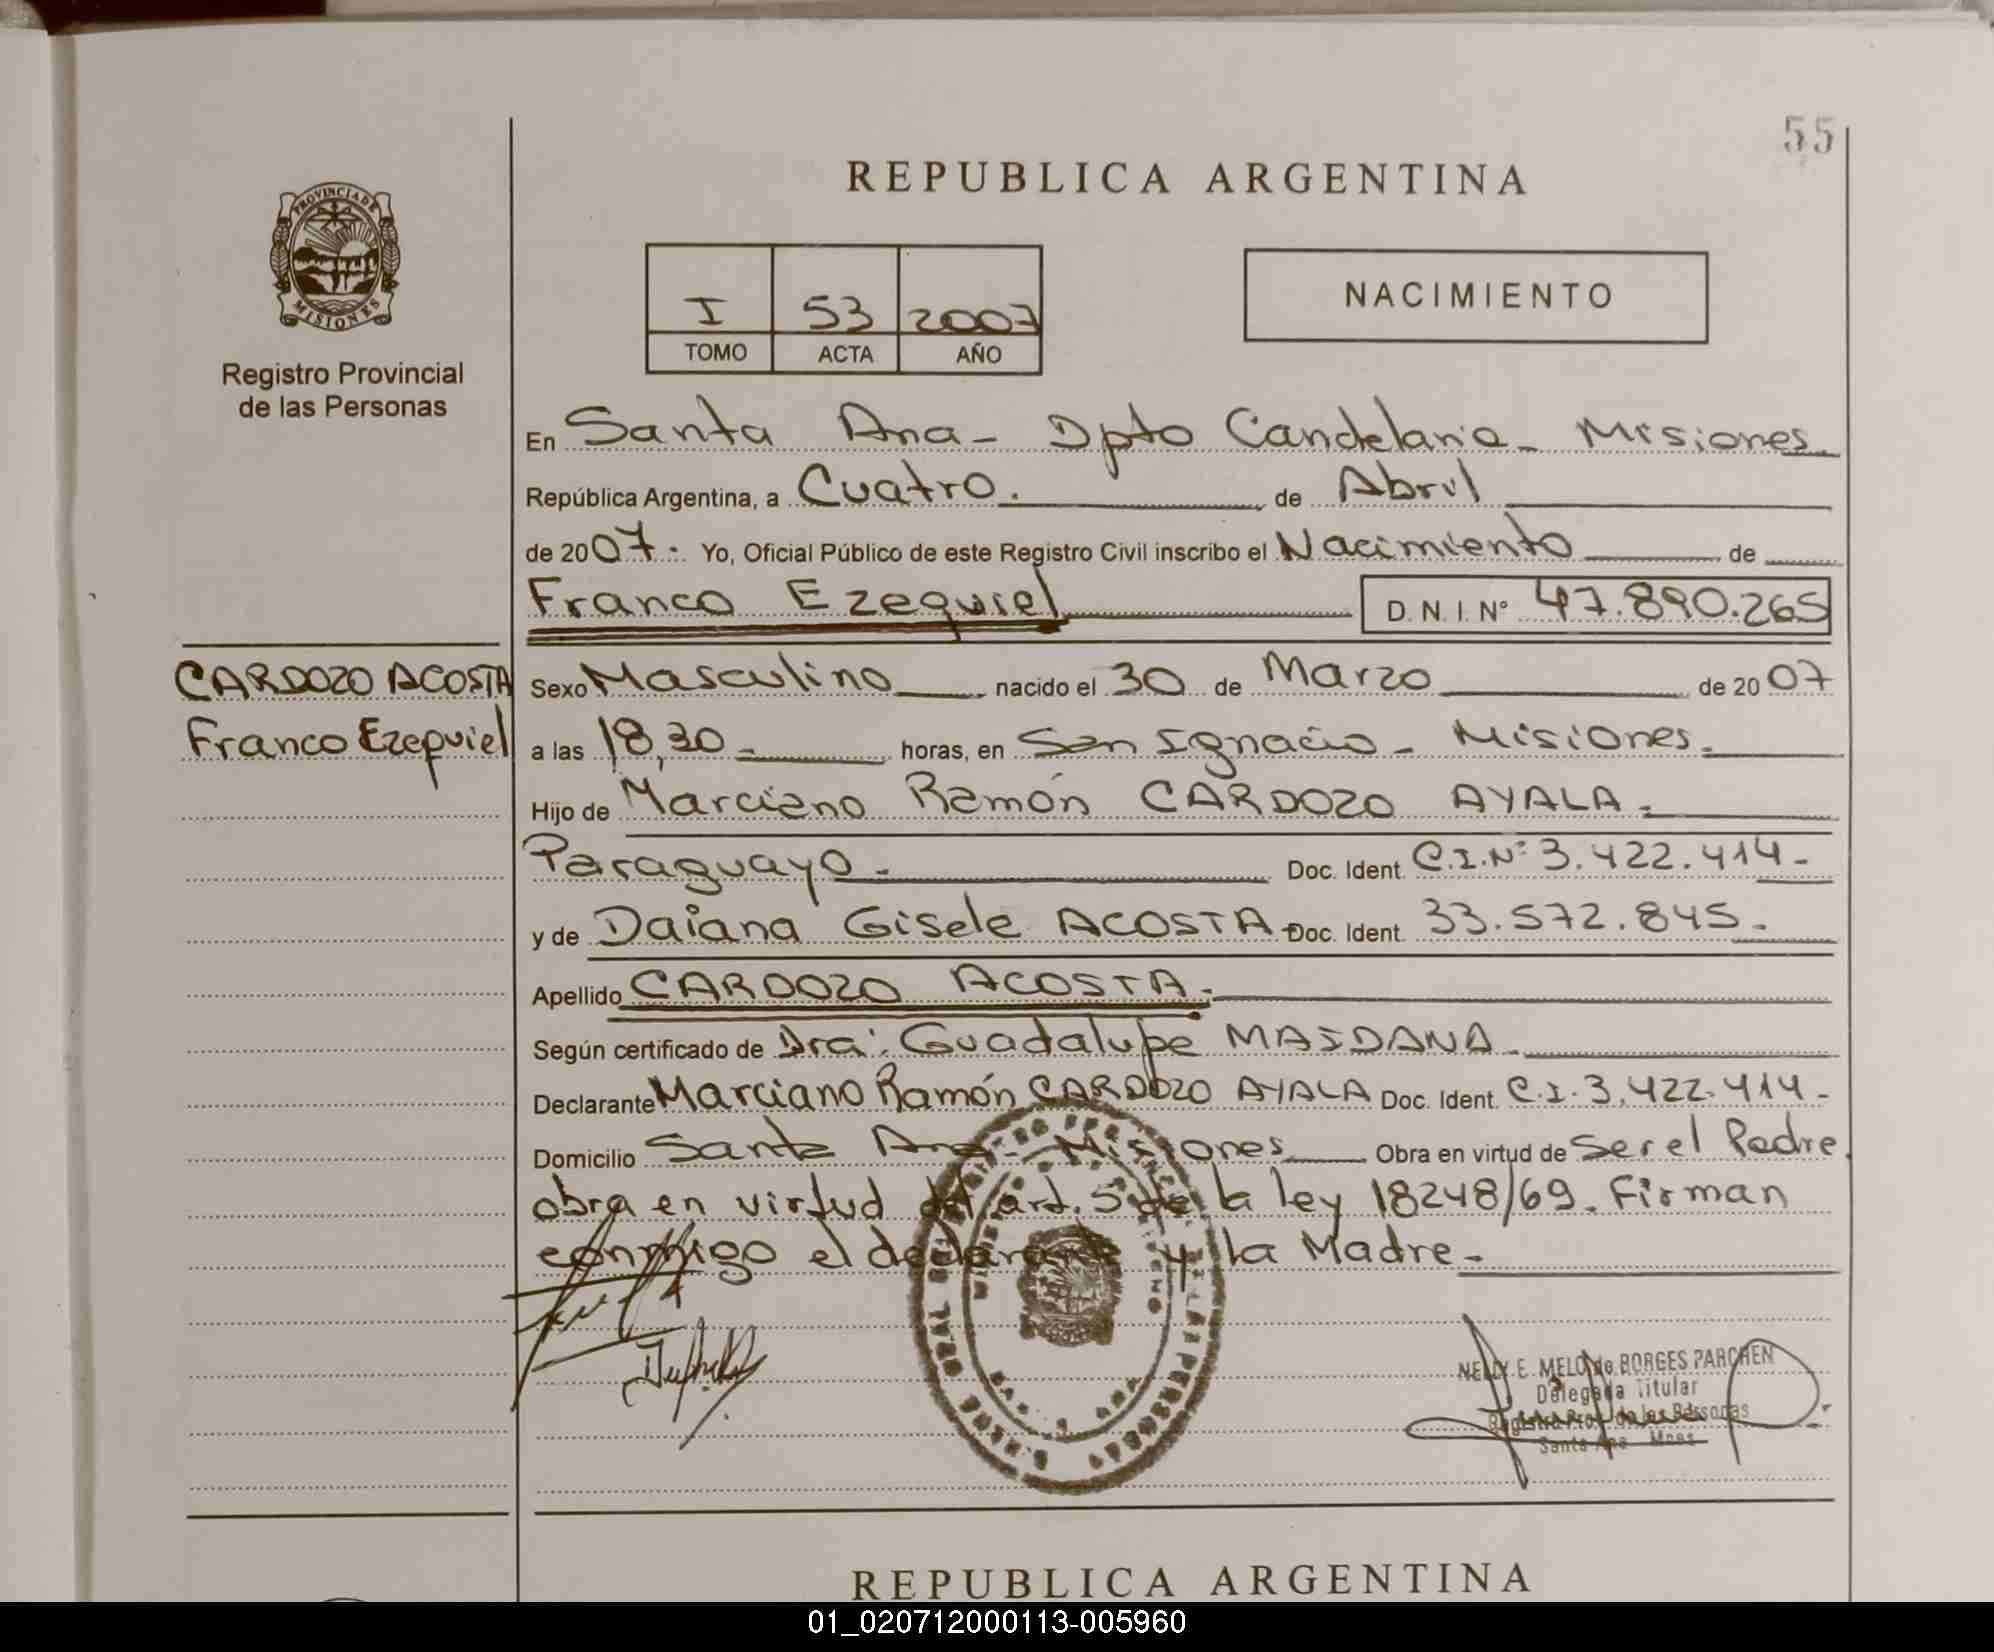 55
REPUBLICA ARGENTINA
PROVINCIA DE
MISIONES
Registro Provincial
de las Personas
I 53 2007
TOMO ACTA AÑO
NACIMIENTO
En Santa Ana - Dpto Candelaria - Misiones
República Argentina, a Cuatro. de Abril
de 2007. Yo, Oficial Público de este Registro Civil inscribo el Nacimiento de
Franco Ezequiel D. N. I. Nº 47.890.265
CARDOZO ACOSTA
Franco Ezequiel
Sexo Masculino nacido el 30 de Marzo de 2007
a las 18,30 horas, en San Ignacio - Misiones.
Hijo de Marciano Ramón CARDOZO AYALA.
Paraguayo. Doc. Ident. C.I.Nº 3.422.414-
y de Daiana Gisele ACOSTA Doc. Ident. 33.572.845.
Apellido CARDOZO ACOSTA.
Según certificado de Dra: Guadalupe MAIDANA
Declarante Marciano Ramón CARDOZO AYALA Doc. Ident. C.I. 3.422.414-
Domicilio Santa Ana - Misiones Obra en virtud de Ser el Padre
obra en virtud del art. 5 de la ley 18248/69. Firman
conmigo el declarante y la Madre-
NELLY E. MELO de BORGES PARCHEN
Delegada Titular
Registro Prov. de las Personas
Santa Ana Mnes
REPUBLICA ARGENTINA
01_020712000113-005960